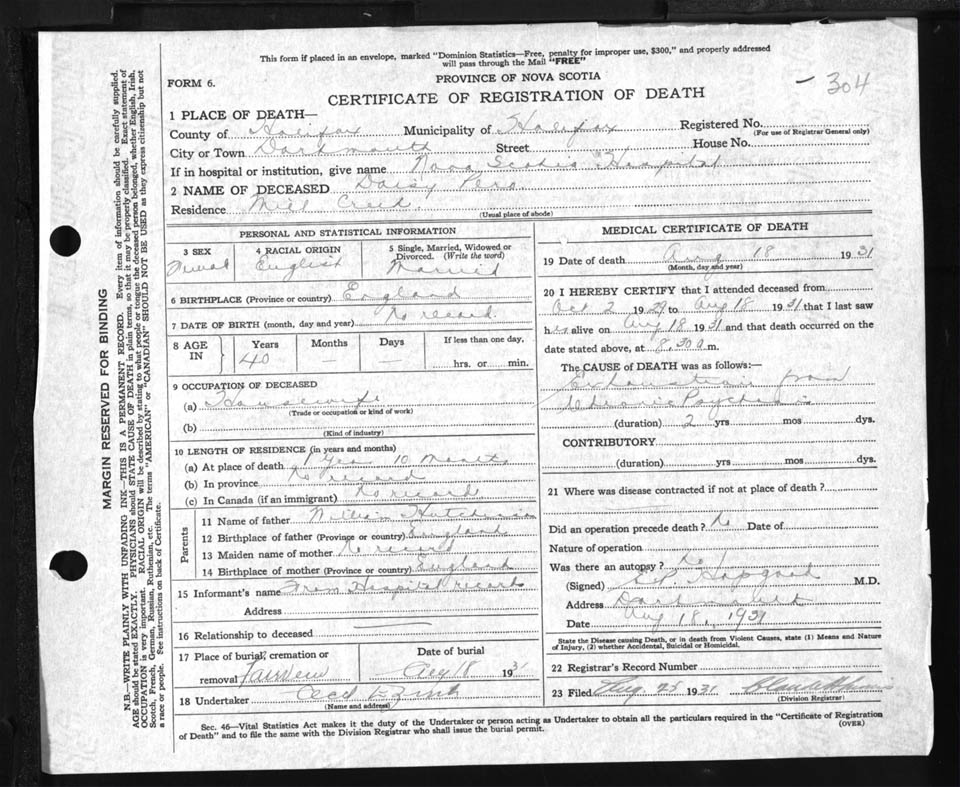 This form if placed in an envelope, marked "Dominion Statistics—Free, penalty for improper use, $300," and properly addressed
will pass through the Mail "FREE"
304
FORM 6.
PROVINCE OF NOVA SCOTIA
CERTIFICATE OF REGISTRATION OF DEATH
1 PLACE OF DEATH—
County of Halifax Municipality of Halifax Registered No.
(For use of Registrar General only)
City or Town Dartmouth Street House No.
If in hospital or institution, give name Nova Scotia Hospital
2 NAME OF DECEASED Daisy
Residence Mill
(Usual place of abode)
PERSONAL AND STATISTICAL INFORMATION
3 SEX 4 RACIAL ORIGIN 5 Single, Married, Widowed or
Divorced. (Write the word)
English Married
6 BIRTHPLACE (Province or country) England
7 DATE OF BIRTH (month, day and year) No record.
8 AGE IN Years Months Days If less than one day,
40 — hrs. or min.
9 OCCUPATION OF DECEASED
(a) Housewife
(Trade or occupation or kind of work)
(b)
(Kind of industry)
10 LENGTH OF RESIDENCE (in years and months)
(a) At place of death 1 Year 10 Months
(b) In province No record
(c) In Canada (if an immigrant) No record
Parents
11 Name of father William
12 Birthplace of father (Province or country) England
13 Maiden name of mother No record
14 Birthplace of mother (Province or country) England
15 Informant's name From Hospital records
Address
16 Relationship to deceased
17 Place of burial, cremation or Date of burial
removal Fairview Aug 18 193
18 Undertaker Cecil E. Zink
(Name and address)
MEDICAL CERTIFICATE OF DEATH
19 Date of death Aug 18 1931
(Month, day and year)
20 I HEREBY CERTIFY that I attended deceased from
Oct 2 1929 to Aug 18 1931 that I last saw
her alive on Aug 18 1931 and that death occurred on the
date stated above, at 8.30 a.m.
The CAUSE of DEATH was as follows:
Exhaustion from
Chronic Psychosis
(duration) 2 yrs mos dys.
CONTRIBUTORY
(duration) yrs mos dys.
21 Where was disease contracted if not at place of death?
Did an operation precede death? No Date of
Nature of operation
Was there an autopsy? No
(Signed) Hopgood M.D.
Address Dartmouth
Date Aug 18, 1931
State the Disease causing Death, or in death from Violent Causes, state (1) Means and Nature
of Injury, (2) whether Accidental, Suicidal or Homicidal.
22 Registrar's Record Number
23 Filed Aug 25 1931
(Division Registrar)
Sec. 46—Vital Statistics Act makes it the duty of the Undertaker or person acting as Undertaker to obtain all the particulars required in the "Certificate of Registration
of Death" and to file the same with the Division Registrar who shall issue the burial permit.
(OVER)
MARGIN RESERVED FOR BINDING
N.B.—WRITE PLAINLY WITH UNFADING INK—THIS IS A PERMANENT RECORD. Every item of information should be carefully supplied.
AGE should be stated EXACTLY. PHYSICIANS should STATE CAUSE OF DEATH in plain terms, so that it may be properly classified. Exact statement of
OCCUPATION is very important. RACIAL ORIGIN will be described by stating to what people or tongue the deceased person belonged, whether English, Irish,
Scotch, French, German, Russian, Ruthenian, etc. The terms "AMERICAN" or "CANADIAN" SHOULD NOT BE USED as they express citizenship but not
a race or people. See instructions on back of Certificate.